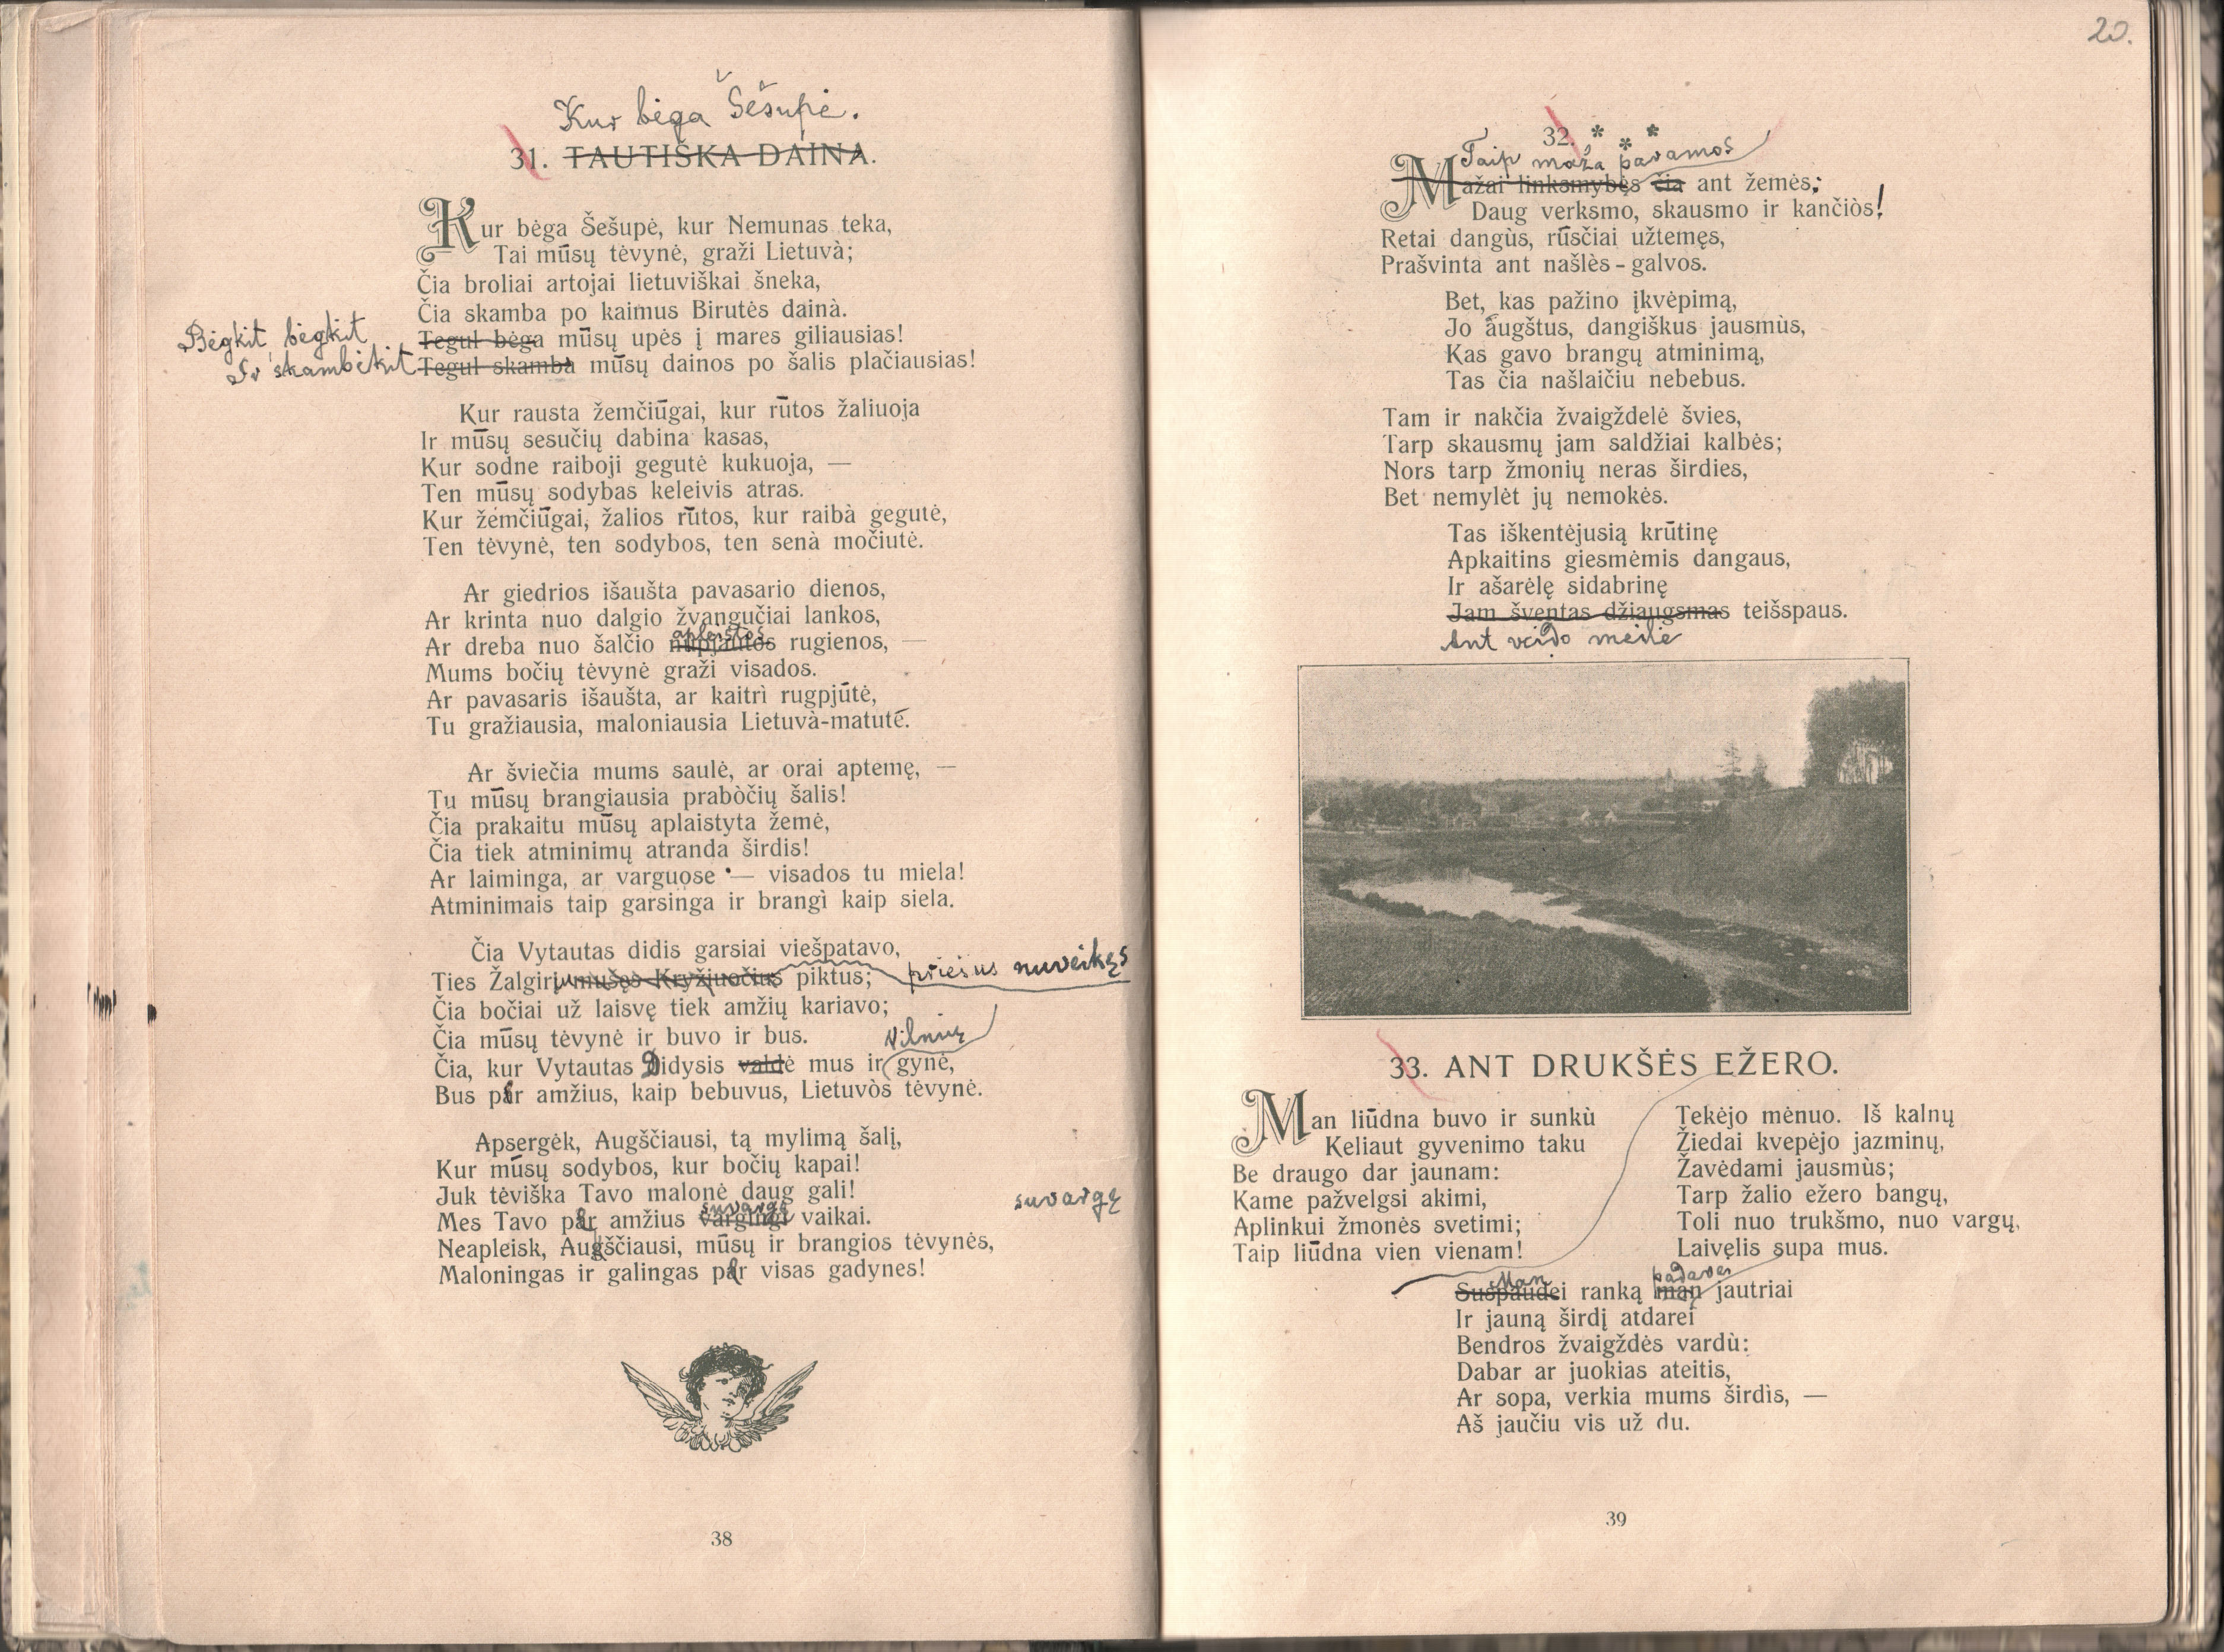 Kur bėga Šešupė.
31. TAUTIŠKA DAINA.
Kur bėga Šešupė, kur Nemunas teka,
Tai mūsų tėvynė, graži Lietuvà;
Čia broliai artojai lietuviškai šneka,
Čia skamba po kaimus Birutės dainà.
Bėgkit, bėgkit
Tegul bėga mūsų upės į mares giliausias!
Ir skambėkit
Tegul skamba mūsų dainos po šalis plačiausias!
Kur rausta žemčiūgai, kur rūtos žaliuoja
Ir mūsų sesučių dabina kasas,
Kur sodne raiboji gegutė kukuoja, —
Ten mūsų sodybas keleivis atras.
Kur žemčiūgai, žalios rūtos, kur raibà gegutė,
Ten tėvynė, ten sodybos, ten senà močiutė.
Ar giedrios išaušta pavasario dienos,
Ar krinta nuo dalgio žvangučiai lankos,
apleistos
Ar dreba nuo šalčio nupjautos rugienos, —
Mums bočių tėvynė graži visados.
Ar pavasaris išaušta, ar kaitrì rugpjūtė,
Tu gražiausia, maloniausia Lietuvà-matutė.
Ar šviečia mums saulė, ar orai aptemę, —
Tu mūsų brangiausia prabòčių šalis!
Čia prakaitu mūsų aplaistyta žemė,
Čia tiek atminimų atranda širdis!
Ar laiminga, ar varguose — visados tu miela!
Atminimais taip garsinga ir brangì kaip siela.
Čia Vytautas didis garsiai viešpatavo,
Ties Žalgiriu mušęs Kryžiuočius piktus; priešus nuveikęs
Čia bočiai už laisvę tiek amžių kariavo;
Čia mūsų tėvynė ir buvo ir bus.
Vilnių
Čia, kur Vytautas Didysis valdė mus ir gynė,
Bus per amžius, kaip bebuvus, Lietuvòs tėvynė.
Apsergėk, Augščiausi, tą mylimą šalį,
Kur mūsų sodybos, kur bočių kapai!
Juk tėviška Tavo malonė daug gali!
suvargę suvargę
Mes Tavo per amžius vargingi vaikai.
Neapleisk, Augščiausi, mūsų ir brangios tėvynės,
Maloningas ir galingas per visas gadynes!
38
20.
32. * * *
Taip maža paramos
Mažai linksmybės čia ant žemės;
Daug verksmo, skausmo ir kančiòs!
Retai dangùs, rūsčiai užtemęs,
Prašvinta ant našlės-galvos.
Bet, kas pažino įkvėpimą,
Jo augštus, dangiškus jausmùs,
Kas gavo brangų atminimą,
Tas čia našlaičiu nebebus.
Tam ir nakčia žvaigždelė švies,
Tarp skausmų jam saldžiai kalbės;
Nors tarp žmonių neras širdies,
Bet nemylėt jų nemokės.
Tas iškentėjusią krūtinę
Apkaitins giesmėmis dangaus,
Ir ašarėlę sidabrinę
Jam šventas džiaugsmas teišspaus.
Ant veido meilė
33. ANT DRUKŠĖS EŽERO.
Man liūdna buvo ir sunkù
Keliaut gyvenimo taku
Be draugo dar jaunam:
Kame pažvelgsi akimi,
Aplinkui žmonės svetimi;
Taip liūdna vien vienam!
Tekėjo mėnuo. Iš kalnų
Žiedai kvepėjo jazminų,
Žavėdami jausmùs;
Tarp žalio ežero bangų,
Toli nuo trukšmo, nuo vargų,
Laivelis supa mus.
Man padavei
Suspaudei ranką man jautriai
Ir jauną širdį atdarei
Bendros žvaigždės vardù:
Dabar ar juokias ateitis,
Ar sopa, verkia mums širdìs, —
Aš jaučiu vis už du.
39